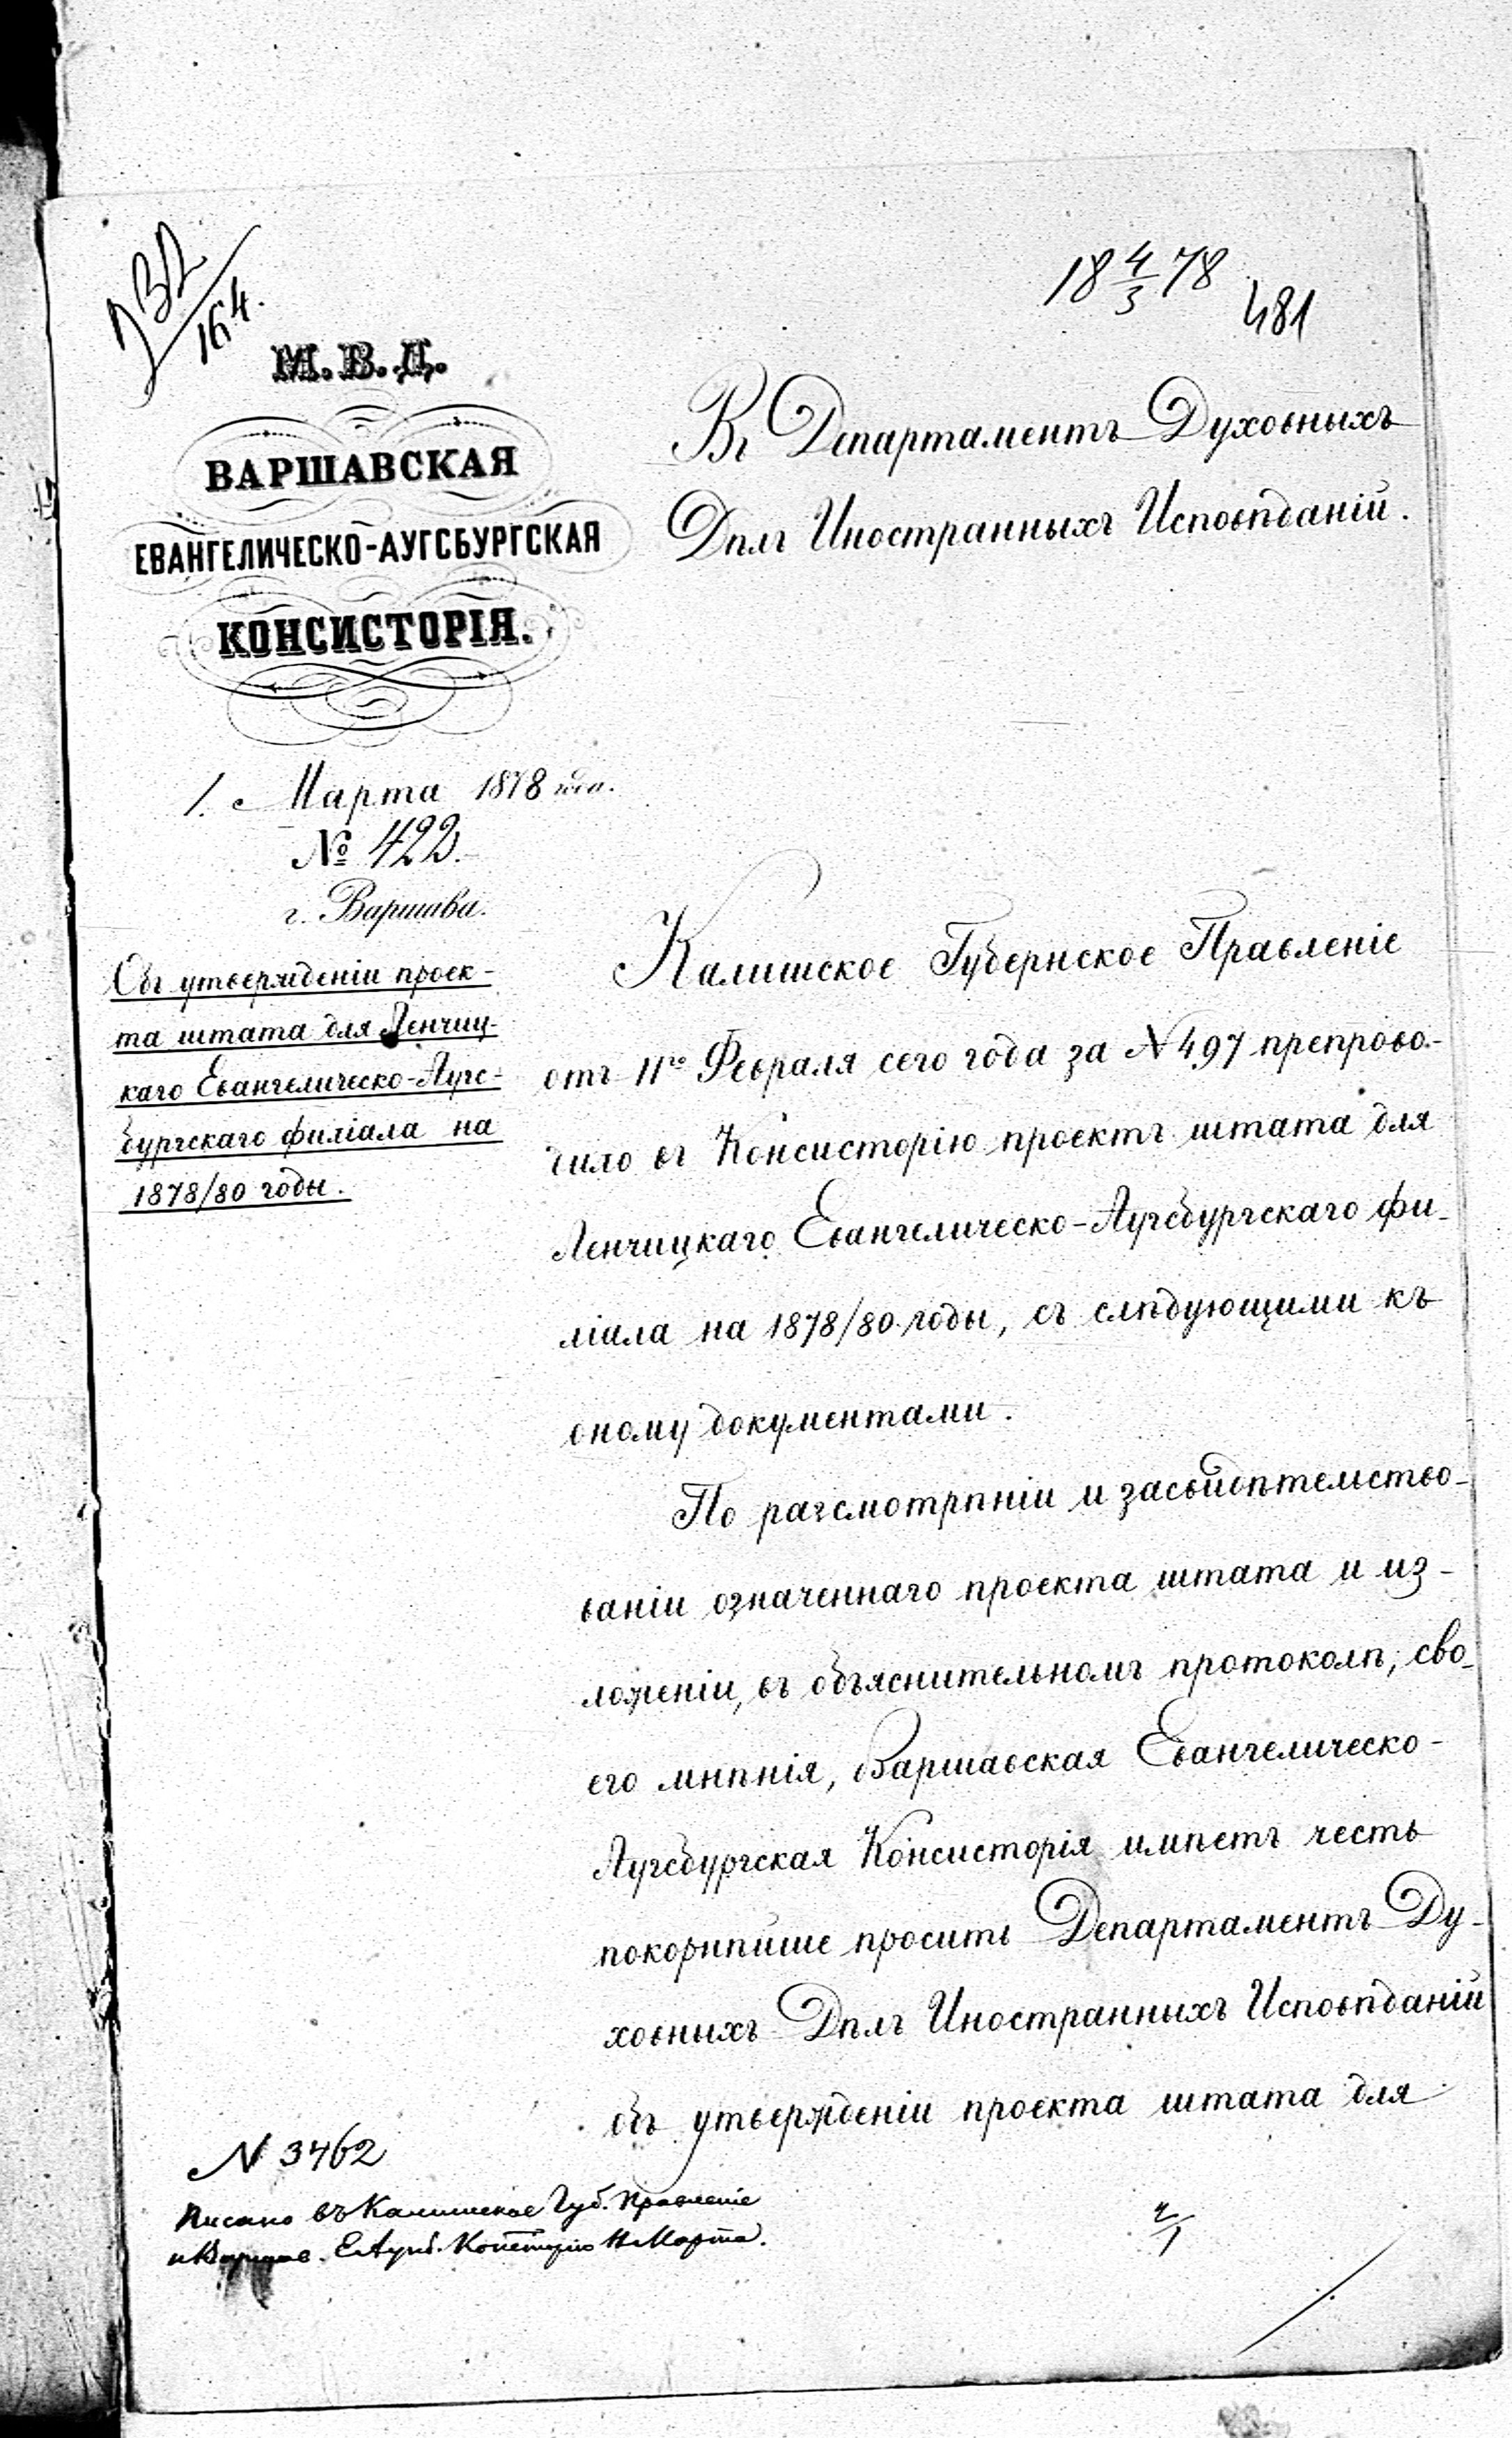 232/164.
18 4/3 78
481
М. В. Д.
ВАРШАВСКАЯ
ЕВАНГЕЛИЧЕСКО-АУГСБУРГСКАЯ
КОНСИСТОРІЯ.
1. Марта 1878 года.
№ 422.
г. Варшава.
Объ утвержденіи проек-
та штата для Ленчиц-
каго Евангелическо-Аугс-
бургскаго филіала на
1878/80 годы.
Въ Департаментъ Духовныхъ
Дѣлъ Иностранныхъ Исповѣданій.
Калишское Губернское Правленіе
отъ 11го Февраля сего года за N 497 препрово-
дило въ Консисторію проектъ штата для
Ленчицкаго Евангелическо-Аугсбургскаго фи-
ліала на 1878/80 годы, съ слѣдующими къ
оному документами.
По разсмотрѣніи и засвидѣтельство-
ваніи означеннаго проекта штата и из-
ложеніи, въ объяснительномъ протоколѣ, сво-
его мнѣнія, Варшавская Евангелическо-
Аугсбургская Консисторія имѣетъ честь
покорнѣйше просить Департаментъ Ду-
ховныхъ Дѣлъ Иностранныхъ Исповѣданій
объ утвержденіи проекта штата для
N 3462
Писано въ Калишское Губ. Правленіе
и Варшав. ЕАугсб. Консторію 11 Марта.